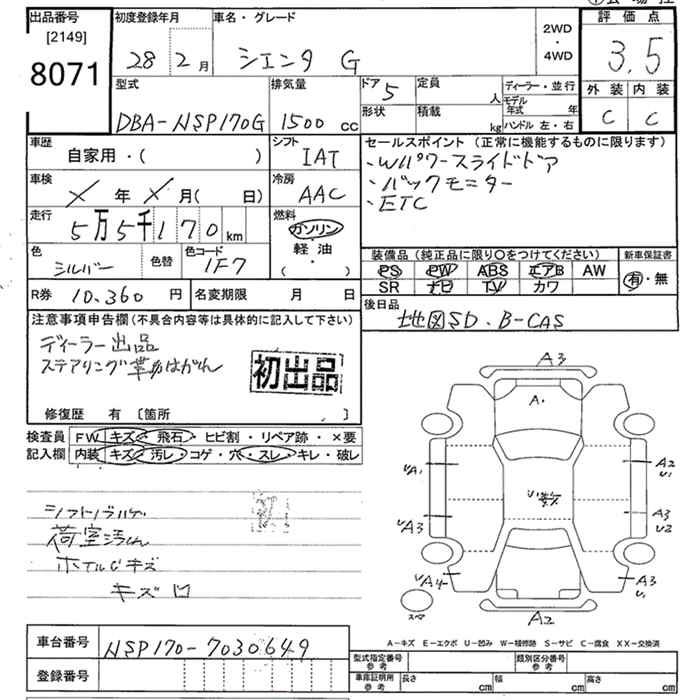 出品番号
[2149]
8071
初度登録年月
28 2月
車名・グレード
シエンタ G
2WD
・
4WD
評価点
3.5
外装 内装
C C
型式
DBA-NSP170G
排気量
1500 cc
ドア 5
形状
定員 人
積載 kg
ディーラー・並行
モデル年式 年
ハンドル 左・右
車歴
自家用・( )
シフト
IAT
車検
X 年 X 月( 日)
冷房
AAC
走行
5万5千170km
燃料
ガソリン
軽・油
( )
色
シルバー
色替
色コード
1F7
R券 10,360 円
名変期限 月 日
セールスポイント(正常に機能するものに限ります)
・Wパワースライドドア
・バックモニター
・ETC
装備品(純正品に限り○をつけてください)
PS PW ABS エアB AW
SR ナビ TV カワ
新車保証書
有・無
後日品
地図SD、B-CAS
注意事項申告欄(不具合内容等は具体的に記入して下さい)
ディーラー出品
ステアリング革はがれ
初出品
修復歴 有 〔箇所 〕
検査員
記入欄
FW キズ・飛石・ヒビ割・リペア跡・×要
内装 キズ・汚レ・コゲ・穴・スレ・キレ・破レ
荷室汚れ
ホイルCキズ
キズ凹
A3
A1
UA1
A2
U1
UA3
A3
U2
UA4
A3
U1
スペア
A2
A-キズ E-エクボ U-凹み W-補修跡 S-サビ C-腐食 XX-交換済
車台番号
NSP170-7030649
登録番号
型式指定番号
参考
類別区分番号
参考
車庫証明用
参考
長さ cm
幅 cm
高さ cm